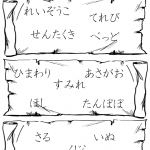 れいぞうこ
てれび
せんたくき べっど
ひまわり あさがお
すみれ
たんぽぽ
さる いぬ